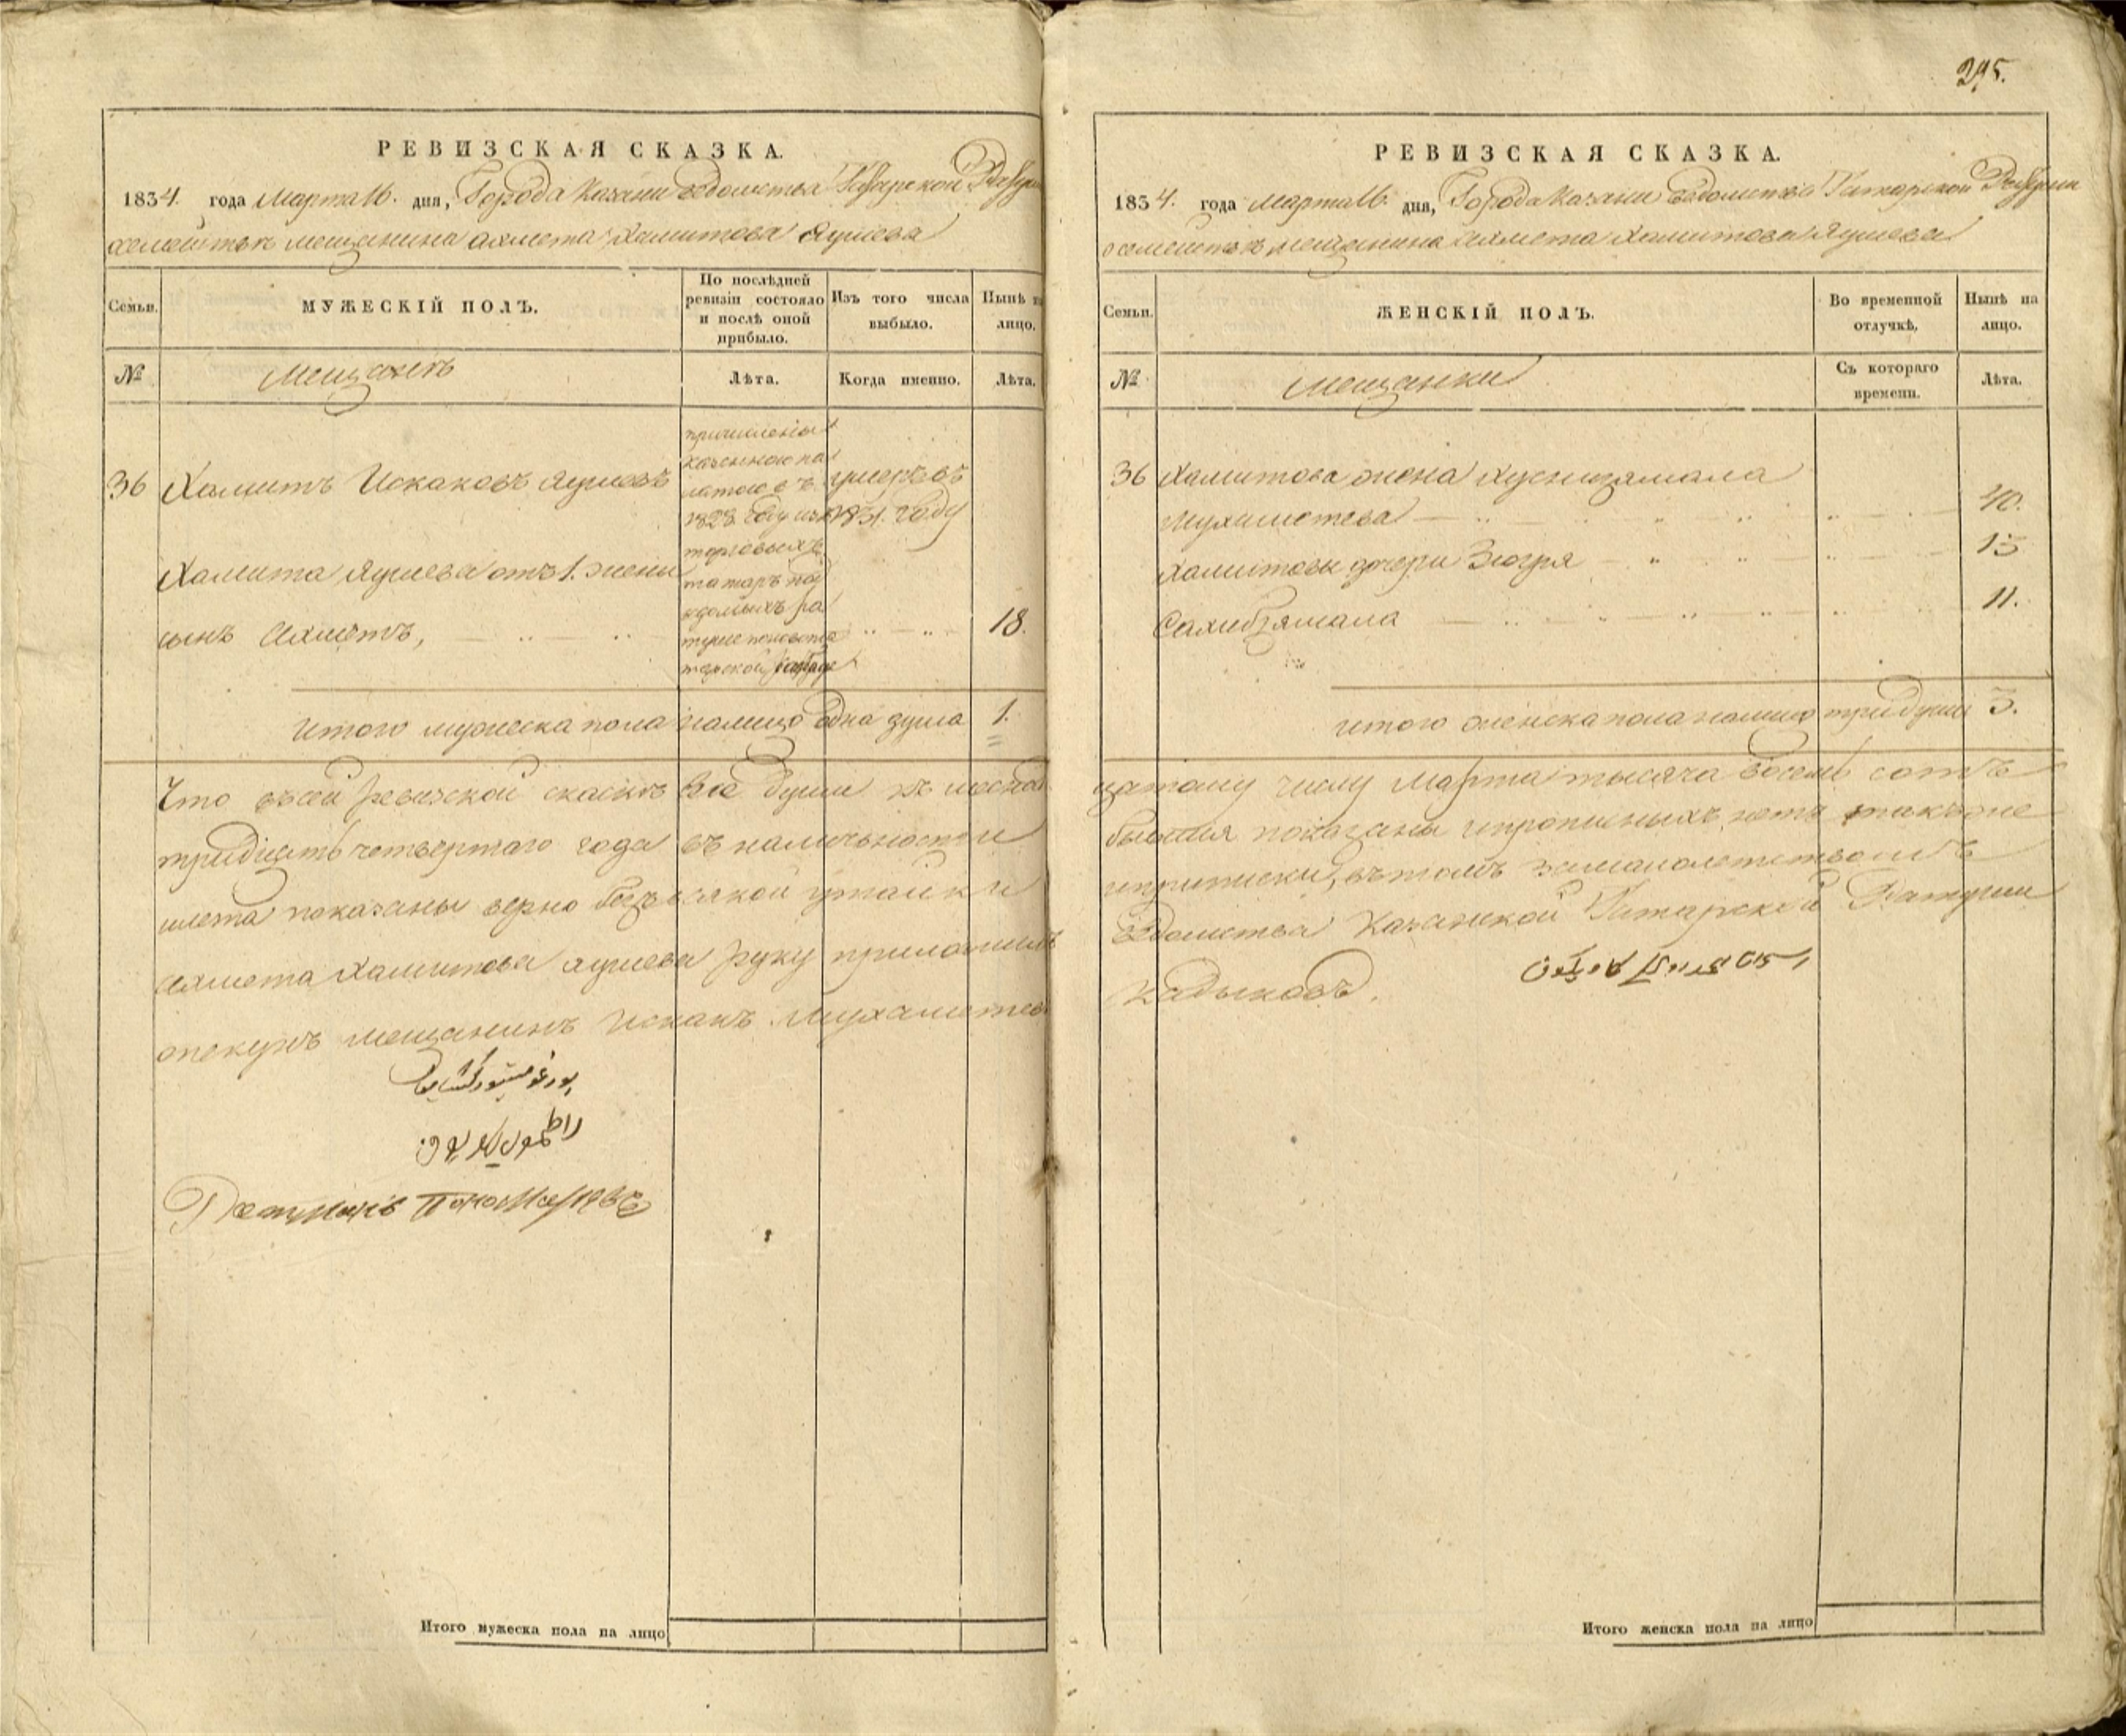 295.
РЕВИЗСКАЯ СКАЗКА.
1834. года Марта 16. дня, Города Казани ведомства Татарской Ратуши
о семействѣ мещанина Ахмета Хамитова Яушева
Семьи.
МУЖЕСКІЙ ПОЛЪ.
По послѣдней ревизіи состояло и послѣ оной прибыло.
Изъ того числа выбыло.
Нынѣ на лицо.
№
Мещанѣ
Лѣта.
Когда именно.
Лѣта.
36 Хамитъ Искаковъ Яушевъ
причислены
казенною па
латою въ
1828 году изъ
торговыхъ
татаръ
ратуше
умеръ въ
1831. году
Хамита Яушева отъ 1. жены
сынъ Ахметъ, 18.
Итого мужеска пола налицо одна душа 1.
Что въ сей ревизской скаскѣ все души
тридцать четвертаго года въ наличьности
и лета показаны верно безъ всякой утайки
Ахмета Хамитова Яушева руку приложилъ
опекунъ мещанинъ Искакъ Мухаметев
Ратманъ
РЕВИЗСКАЯ СКАЗКА.
1834. года Марта 16. дня, Города Казани ведомства Татарской Ратуши
о семействѣ мещанина Ахмета Хамитова Яушева
Семьи.
ЖЕНСКІЙ ПОЛЪ.
Во временной отлучкѣ,
Нынѣ на лицо.
№
Мещанки
Съ котораго времени.
Лѣта.
36 Хамитова жена Хуснизямала
Мухаметева 40.
Хамитовы дочери Зюгря 15
Сахибзямала 11.
итого женска пола налицо три души 3.
цатому числу Марта тысяча восемь сотъ
бывшия показаны и прописныхъ нетъ также
и приписки, въ томъ за малолетствомъ
ведомства Казанской Татарской Ратуши
Кадыковъ.
Итого мужеска пола на лицо
Итого женска пола на лицо